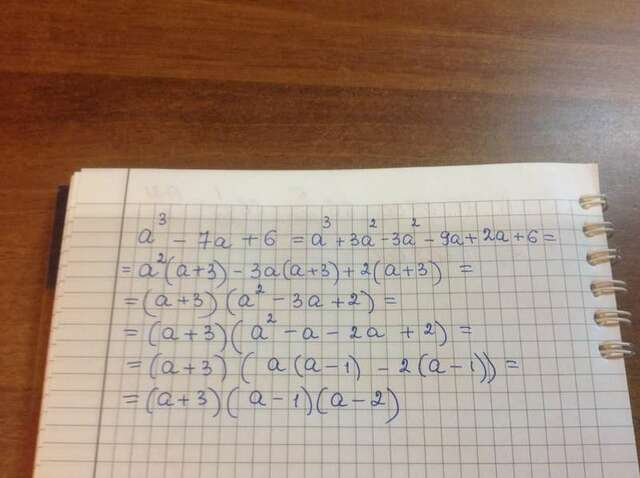 a³ - 7a + 6 = a³ + 3a² - 3a² - 9a + 2a + 6 =
= a²(a+3) - 3a(a+3) + 2(a+3) =
= (a+3)(a² - 3a + 2) =
= (a+3)(a² - a - 2a + 2) =
= (a+3)(a(a-1) - 2(a-1)) =
= (a+3)(a-1)(a-2)